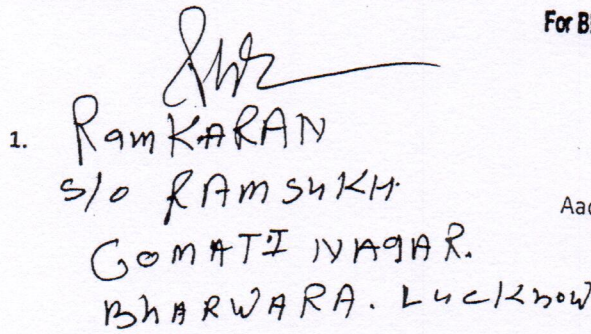 For B
1. Ram KARAN
S/o RAMSUKH.
GOMATI NAGAR.
Aad
BHARWARA. Lucknow